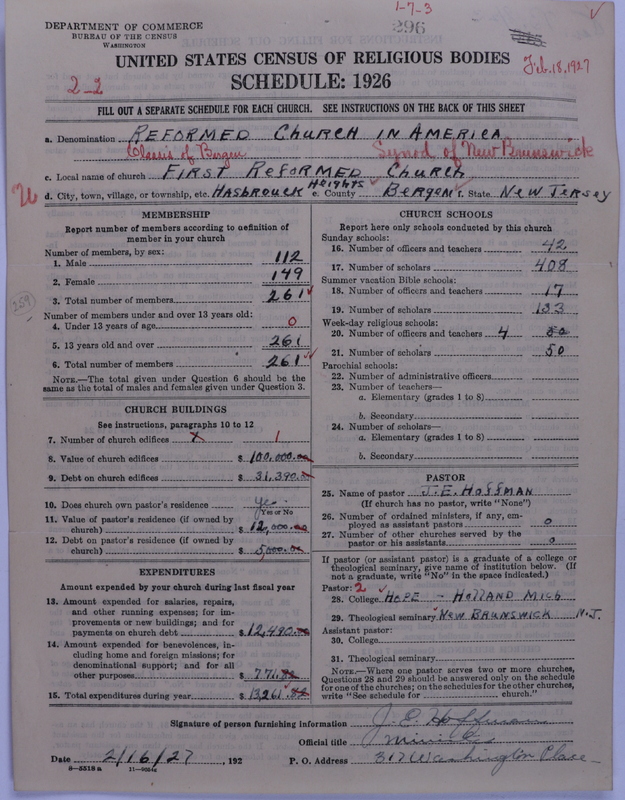 1-7-3
DEPARTMENT OF COMMERCE
BUREAU OF THE CENSUS
WASHINGTON
296
UNITED STATES CENSUS OF RELIGIOUS BODIES
Feb. 18, 1927
2-2
SCHEDULE: 1926
FILL OUT A SEPARATE SCHEDULE FOR EACH CHURCH. SEE INSTRUCTIONS ON THE BACK OF THIS SHEET
a. Denomination REFORMED CHURCH IN AMERICA
Classis of Bergen Synod of New Brunswick
c. Local name of church FIRST REFORMED CHURCH
d. City, town, village, or township, etc. HASBROUCK HEIGHTS e. County BERGEN f. State NEW JERSEY
MEMBERSHIP
Report number of members according to definition of
member in your church
Number of members, by sex:
1. Male 112
2. Female 149
3. Total number of members 261
259
Number of members under and over 13 years old:
4. Under 13 years of age 0
5. 13 years old and over 261
6. Total number of members 261
NOTE.—The total given under Question 6 should be the
same as the total of males and females given under Question 3.
CHURCH BUILDINGS
See instructions, paragraphs 10 to 12
7. Number of church edifices x 1
8. Value of church edifices $ 100,000.00
9. Debt on church edifices $ 31,390.00
10. Does church own pastor's residence yes
(Yes or No
11. Value of pastor's residence (if owned by
church) $ 12,000.00
12. Debt on pastor's residence (if owned by
church) $ 5,000.00
EXPENDITURES
Amount expended by your church during last fiscal year
13. Amount expended for salaries, repairs,
and other running expenses; for im-
provements or new buildings; and for
payments on church debt $ 12,490.00
14. Amount expended for benevolences, in-
cluding home and foreign missions; for
denominational support; and for all
other purposes $ 771.
15. Total expenditures during year $ 13,261.
CHURCH SCHOOLS
Report here only schools conducted by this church
Sunday schools:
16. Number of officers and teachers 42
17. Number of scholars 408
Summer vacation Bible schools:
18. Number of officers and teachers 17
19. Number of scholars 133
Week-day religious schools:
20. Number of officers and teachers 4
21. Number of scholars 50
Parochial schools:
22. Number of administrative officers
23. Number of teachers—
a. Elementary (grades 1 to 8)
b. Secondary
24. Number of scholars—
a. Elementary (grades 1 to 8)
b. Secondary
PASTOR
25. Name of pastor J. E. HOFFMAN
(If church has no pastor, write "None")
26. Number of ordained ministers, if any, em-
ployed as assistant pastors 0
27. Number of other churches served by the
pastor or his assistants 0
If pastor (or assistant pastor) is a graduate of a college or
theological seminary, give name of institution below. (If
not a graduate, write "No" in the space indicated.)
Pastor: 2
28. College HOPE - HOLLAND MICH
29. Theological seminary NEW BRUNSWICK N.J.
Assistant pastor:
30. College
31. Theological seminary
NOTE.—Where one pastor serves two or more churches,
Questions 28 and 29 should be answered only on the schedule
for one of the churches; on the schedules for the other churches,
write "See schedule for church."
Signature of person furnishing information J. E. Hoffman
Official title Minister
Date 2/16/27, 192 P. O. Address 317 Washington Place
8-5518a 11-9064a